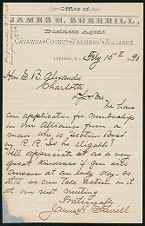 Office of
JAMES H. SHERRILL,
Business Agent
CATAWBA COUNTY FARMERS' ALLIANCE.
Feby 15th 1890
Hon. S. B. Alexander
Charlotte
We have
an application for membership
in our Alliance from a
man who is Section Boss
on R. R. Is he eligible?
Will appreciate it as a very
great kindness if you will
answer at an early day. so
that we can take action on it
at our next meeting
Fraternally
James H. Sherrill